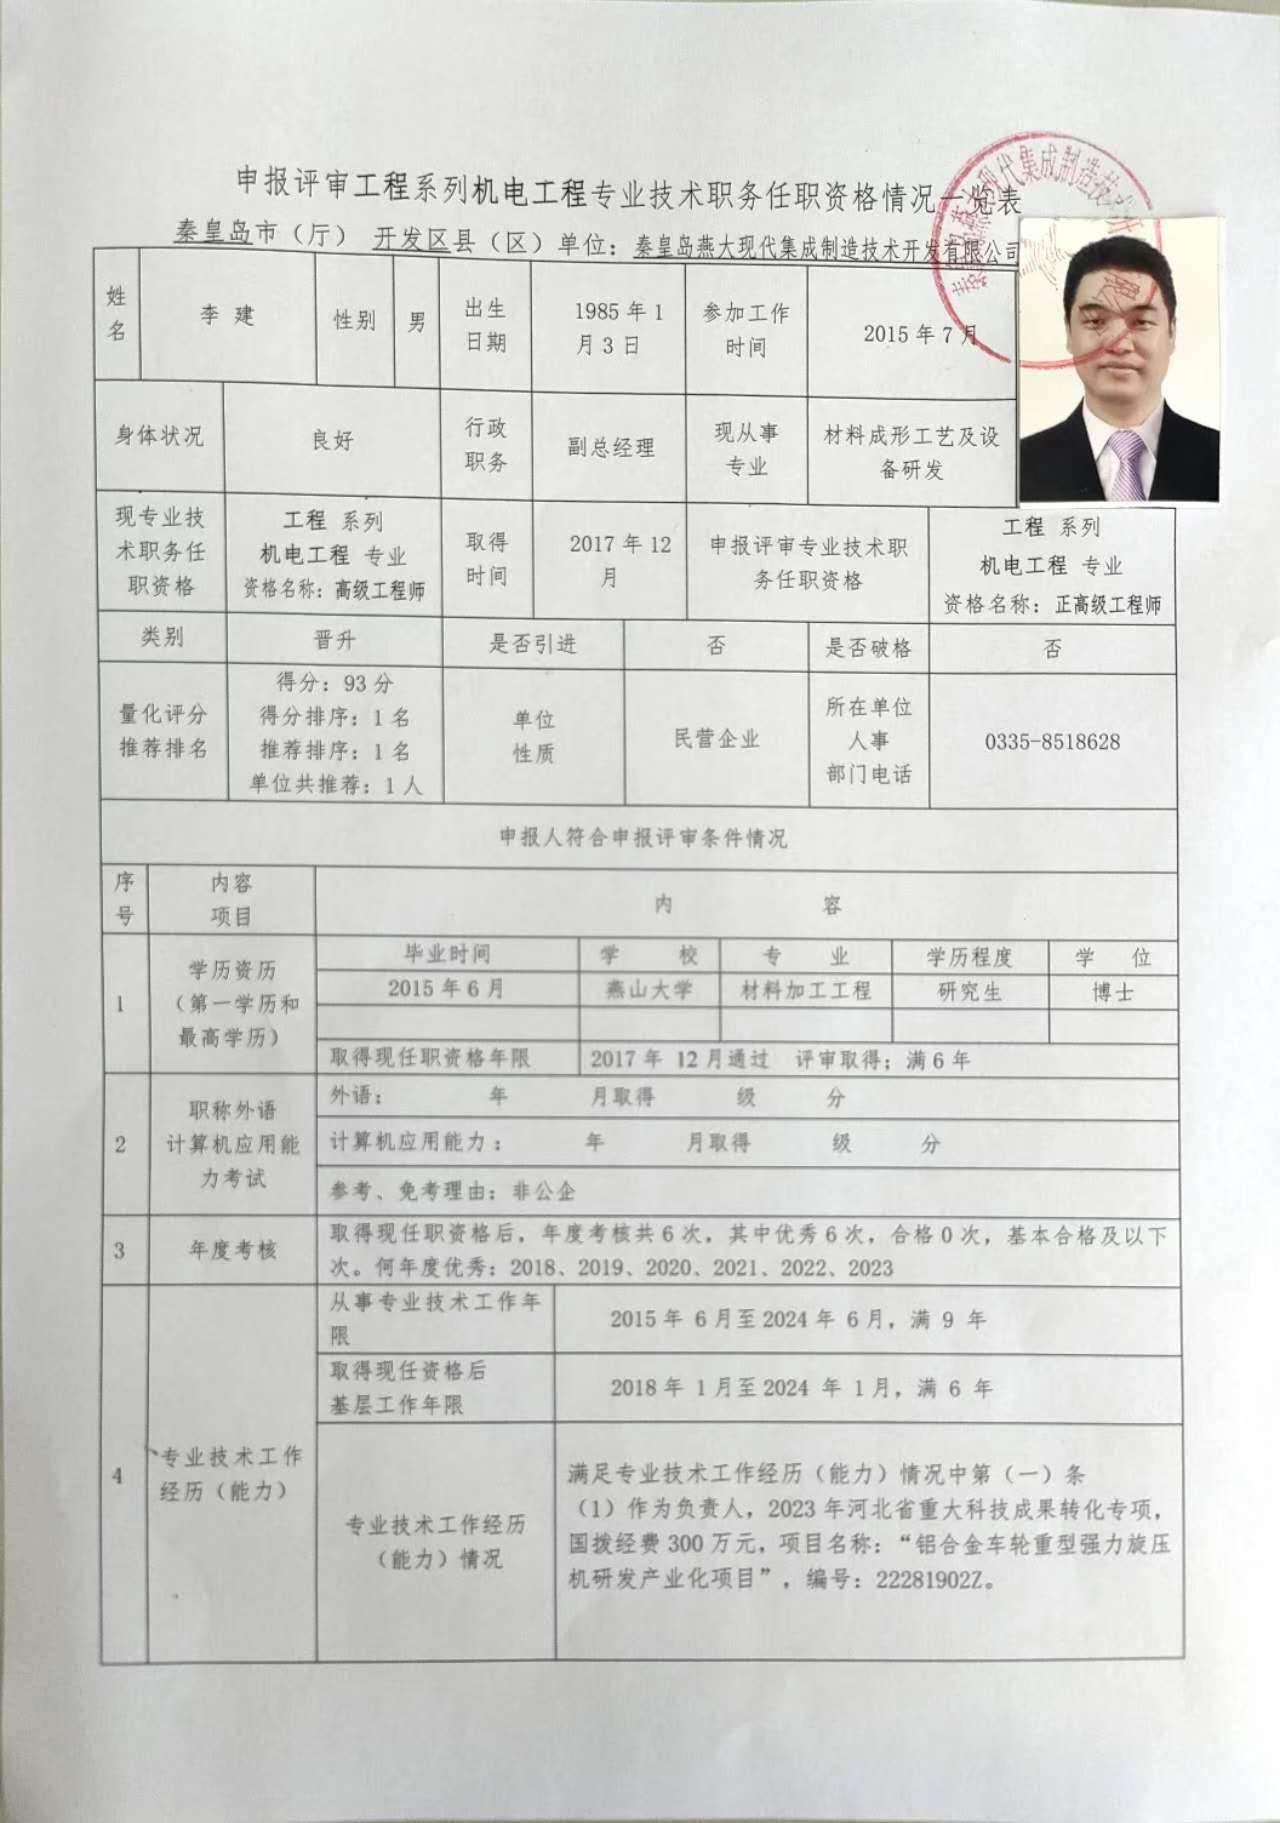 申报评审工程系列机电工程专业技术职务任职资格情况一览表
秦皇岛市（厅） 开发区县（区）单位：秦皇岛燕大现代集成制造技术开发有限公司
姓名
李 建
性别
男
出生
日期
1985年1
月3日
参加工作
时间
2015年7月
身体状况
良好
行政
职务
副总经理
现从事
专业
材料成形工艺及设
备研发
现专业技
术职务任
职资格
工程 系列
机电工程 专业
资格名称：高级工程师
取得
时间
2017年12
月
申报评审专业技术职
务任职资格
工程 系列
机电工程 专业
资格名称：正高级工程师
类别
晋升
是否引进
否
是否破格
否
量化评分
推荐排名
得分：93分
得分排序：1名
推荐排序：1名
单位共推荐：1人
单位
性质
民营企业
所在单位
人事
部门电话
0335-8518628
申报人符合申报评审条件情况
序号
内容
项目
内 容
1
学历资历
（第一学历和
最高学历）
毕业时间
学 校
专 业
学历程度
学 位
2015年6月
燕山大学
材料加工工程
研究生
博士
取得现任职资格年限
2017年 12月通过 评审取得；满6年
2
职称外语
计算机应用能
力考试
外语： 年 月取得 级 分
计算机应用能力： 年 月取得 级 分
参考、免考理由：非公企
3
年度考核
取得现任职资格后，年度考核共6次，其中优秀6次，合格0次，基本合格及以下
次。何年度优秀：2018、2019、2020、2021、2022、2023
4
专业技术工作
经历（能力）
从事专业技术工作年
限
2015年 6月至2024年 6月，满 9 年
取得现任资格后
基层工作年限
2018年 1月至2024 年 1月，满 6 年
专业技术工作经历
（能力）情况
满足专业技术工作经历（能力）情况中第（一）条
（1）作为负责人，2023年河北省重大科技成果转化专项，
国拨经费300万元，项目名称：“铝合金车轮重型强力旋压
机研发产业化项目”，编号：22281902Z。